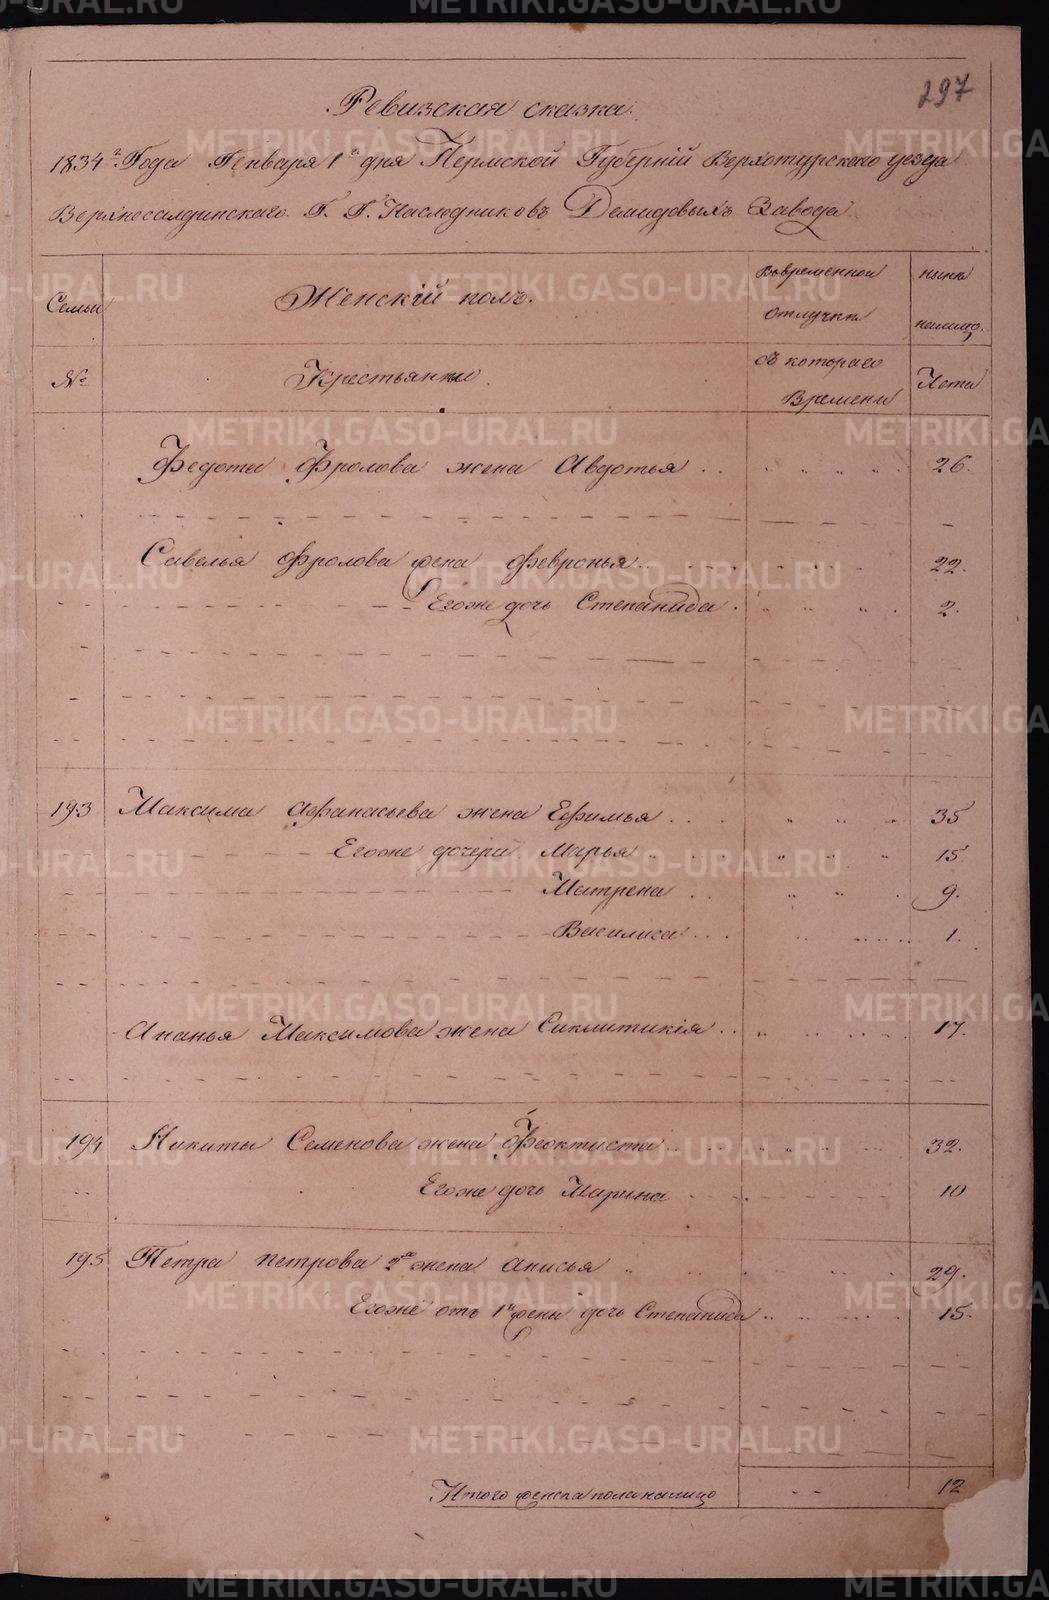 297
Ревизская сказка.
1834го Года Генваря 1го дня Пермской Губерній Верхотурского уезда
Верхнесалдинскаго Г. Г. Наследниковъ Демидовыхъ Завода
Семьи
Женскій полъ.
Вовременной отлучки
ныне налицо.
№
Крестьянки
съ котораго Времени
Лета
Федота Фролова жена Авдотья 26.
Савелья Фролова жена Февронья 22.
Егоже дочь Степанида 2.
193 Максима Афанасьева жена Ефимья 35
Егоже дочери Марья 15
Матрена 9.
Василиса 1.
Ананья Максимова жена Сиклитикія 17.
194 Никиты Семенова жена Феоктиста 32.
Егоже дочь Марина 10
195 Петра Петрова 2я жена Анисья 29.
Егоже отъ 1й жены дочь Степанида 15.
Итого женска пола налицо 12
METRIKI.GASO-URAL.RU